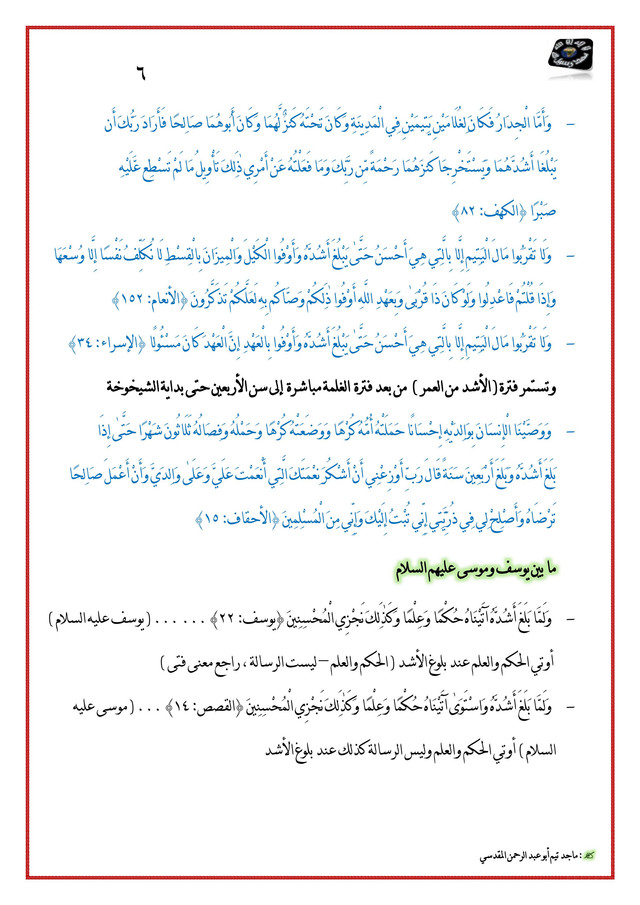 ٦
- وَأَمَّا الْجِدَارُ فَكَانَ لِغُلَامَيْنِ يَتِيمَيْنِ فِي الْمَدِينَةِ وَكَانَ تَحْتَهُ كَنزٌ لَّهُمَا وَكَانَ أَبُوهُمَا صَالِحًا فَأَرَادَ رَبُّكَ أَن
يَبْلُغَا أَشُدَّهُمَا وَيَسْتَخْرِجَا كَنزَهُمَا رَحْمَةً مِّن رَّبِّكَ وَمَا فَعَلْتُهُ عَنْ أَمْرِي ذَٰلِكَ تَأْوِيلُ مَا لَمْ تَسْطِع عَّلَيْهِ
صَبْرًا ﴿الكهف: ٨٢﴾
- وَلَا تَقْرَبُوا مَالَ الْيَتِيمِ إِلَّا بِالَّتِي هِيَ أَحْسَنُ حَتَّىٰ يَبْلُغَ أَشُدَّهُ وَأَوْفُوا الْكَيْلَ وَالْمِيزَانَ بِالْقِسْطِ لَا نُكَلِّفُ نَفْسًا إِلَّا وُسْعَهَا
وَإِذَا قُلْتُمْ فَاعْدِلُوا وَلَوْ كَانَ ذَا قُرْبَىٰ وَبِعَهْدِ اللَّهِ أَوْفُوا ذَٰلِكُمْ وَصَّاكُم بِهِ لَعَلَّكُمْ تَذَكَّرُونَ ﴿الأنعام: ١٥٢﴾
- وَلَا تَقْرَبُوا مَالَ الْيَتِيمِ إِلَّا بِالَّتِي هِيَ أَحْسَنُ حَتَّىٰ يَبْلُغَ أَشُدَّهُ وَأَوْفُوا بِالْعَهْدِ إِنَّ الْعَهْدَ كَانَ مَسْئُولًا ﴿الإسراء: ٣٤﴾
وتستمر فترة ( الأشد من العمر ) من بعد فترة الغلمة مباشرة إلى سن الأربعين حتى بداية الشيخوخة
- وَوَصَّيْنَا الْإِنسَانَ بِوَالِدَيْهِ إِحْسَانًا حَمَلَتْهُ أُمُّهُ كُرْهًا وَوَضَعَتْهُ كُرْهًا وَحَمْلُهُ وَفِصَالُهُ ثَلَاثُونَ شَهْرًا حَتَّىٰ إِذَا
بَلَغَ أَشُدَّهُ وَبَلَغَ أَرْبَعِينَ سَنَةً قَالَ رَبِّ أَوْزِعْنِي أَنْ أَشْكُرَ نِعْمَتَكَ الَّتِي أَنْعَمْتَ عَلَيَّ وَعَلَىٰ وَالِدَيَّ وَأَنْ أَعْمَلَ صَالِحًا
تَرْضَاهُ وَأَصْلِحْ لِي فِي ذُرِّيَّتِي إِنِّي تُبْتُ إِلَيْكَ وَإِنِّي مِنَ الْمُسْلِمِينَ ﴿الأحقاف: ١٥﴾
ما بين يوسف وموسى عليهم السلام
- وَلَمَّا بَلَغَ أَشُدَّهُ آتَيْنَاهُ حُكْمًا وَعِلْمًا وَكَذَٰلِكَ نَجْزِي الْمُحْسِنِينَ ﴿يوسف: ٢٢﴾ . . . . . . ( يوسف عليه السلام )
أوتي الحكم والعلم عند بلوغ الأشد ( الحكم والعلم – ليست الرسالة ، راجع معنى فتى )
- وَلَمَّا بَلَغَ أَشُدَّهُ وَاسْتَوَىٰ آتَيْنَاهُ حُكْمًا وَعِلْمًا وَكَذَٰلِكَ نَجْزِي الْمُحْسِنِينَ ﴿القصص: ١٤﴾ . . . ( موسى عليه
السلام ) أوتي الحكم والعلم وليس الرسالة كذلك عند بلوغ الأشد
: ماجد تيم أبو عبد الرحمن المقدسي